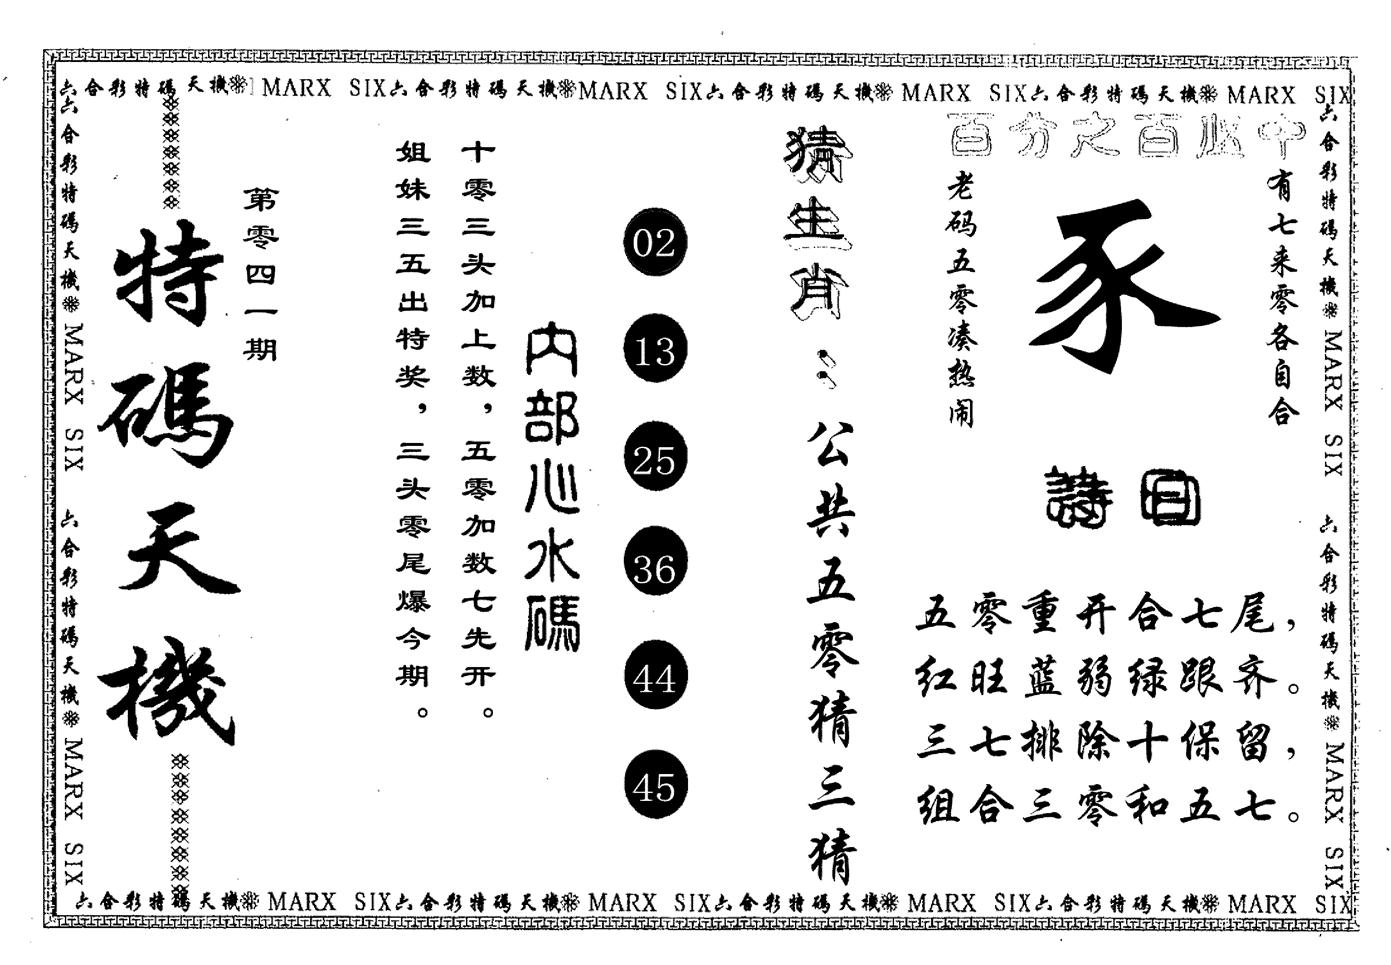 六合彩特碼天機 MARX SIX六合彩特碼天機MARX SIX六合彩特碼天機 MARX SIX六合彩特碼天機 MARX SIX
六合彩特碼天機 MARX SIX 六合彩特碼天機 MARX SIX
特碼天機
第零四一期
姐妹三五出特奖，三头零尾爆今期。
十零三头加上数，五零加数七先开。
内部心水碼
02
13
25
36
44
45
猜生肖：公共五零猜三猜
百分之百必中
老码五零凑热闹
豕
有七来零各自合
五零重开合七尾，
红旺蓝弱绿跟齐。
三七排除十保留，
组合三零和五七。
六合彩特碼天機 MARX SIX 六合彩特碼天機 MARX SIX
六合彩特碼天機 MARX SIX六合彩特碼天機 MARX SIX六合彩特碼天機 MARX SIX六合彩特碼天機 MARX SIX